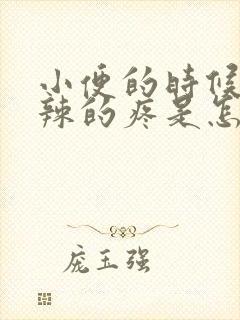 小便的时候
辣的疼是怎
庞玉强